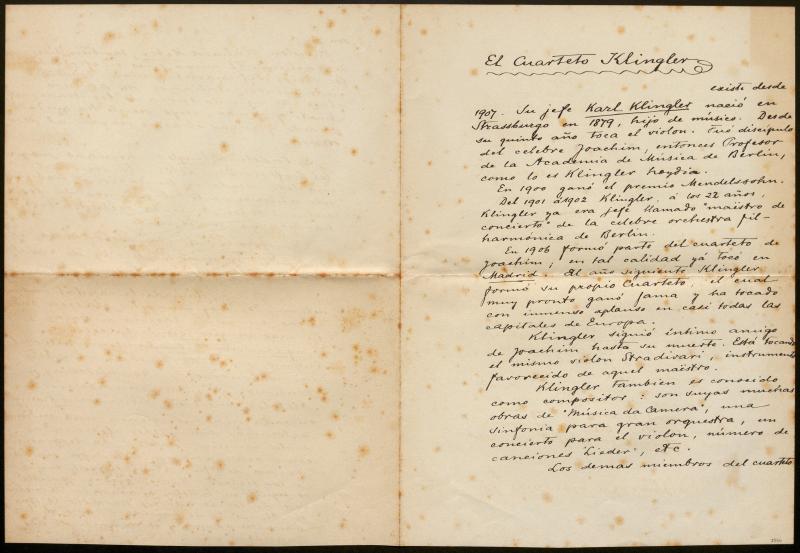 El Cuarteto Klingler
existe desde
1907. Su jefe Karl Klingler nació en
Strassburgo en 1879, hijo de músico. Desde
su quinto año toca el violon. Fué discípulo
del célebre Joachim, entonces Profesor
de la Academia de Música de Berlin,
como lo es Klingler hoydia.
En 1900 ganó el premio Mendelssohn.
Del 1901 á 1902 Klingler, á los 22 años,
Klingler ya era jefe llamado "maëstro de
concierto" de la célebre orchestra fil-
harmónica de Berlin.
En 1906 formó parte del cuarteto de
Joachim, en tal calidad yá tocó en
Madrid. Al año siguiente Klingler
formó su propio Cuarteto, el cual
muy pronto ganó fama y ha tocado
con inmenso aplauso en casi todas las
capitales de Europa.
Klingler siguió íntimo amigo
de Joachim hasta su muerte. Está tocando
el mismo violon Stradivari, instrumento
favorecido de aquel maëstro.
Klingler tambien es conocido
como compositor: son suyas muchas
obras de "Música da Camera", una
sinfonía para gran orquestra, un
concierto para el violon, número de
canciones "Lieder", etc.
Los demas miembros del cuarteto